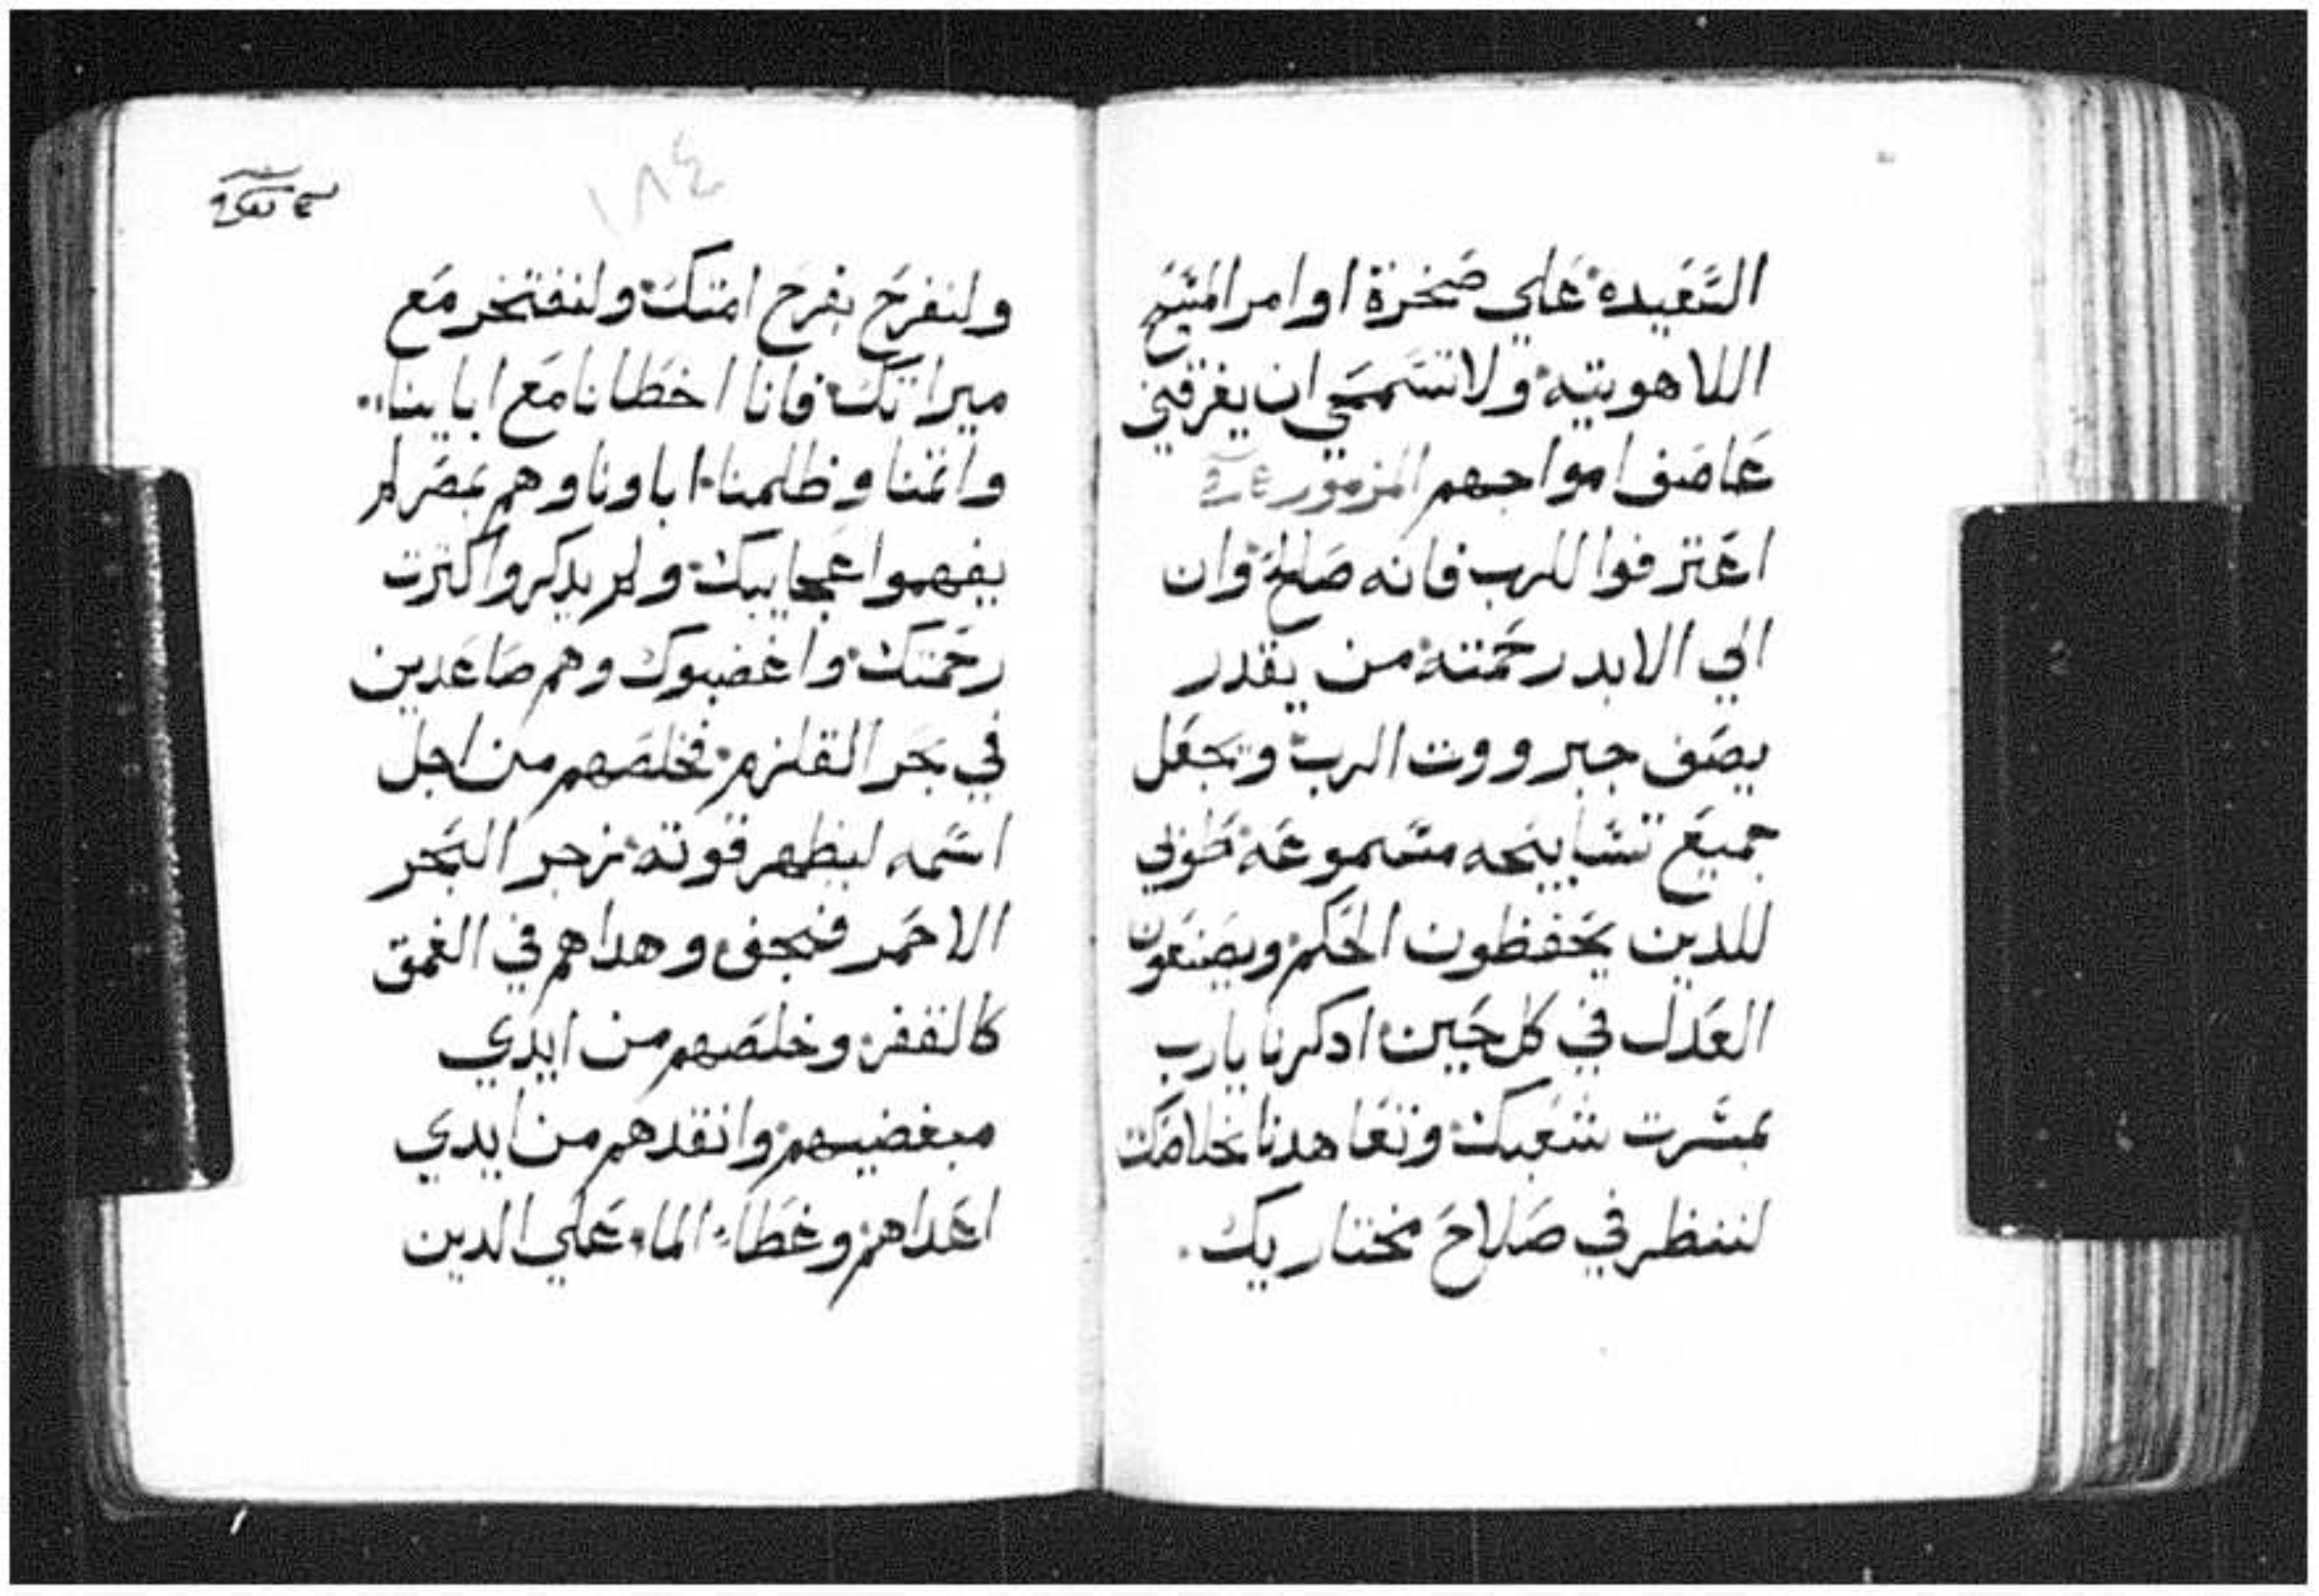 السعيده علي صخرة اوامر المسيح
اللاهوتيه ولا تسمحي ان يغرقني
عاصف امواجهم المزمور
اعترفوا للرب فانه صالح وان
الي الابد رحمته من يقدر
يصف جبرووت الرب ويجعل
جميع تسابيحه مسموعه طوبي
للدين يحفظون الحكم ويصنعون
العدل في كل حين ادكرنا يارب
بمسرت شعبك وتعاهدنا بخلاصك
لننظر في صلاح مختاريك.
١٨٤
ولنفرح بفرح امتك ولنفتخر مع
ميراتك فانا اخطانا مع اباينا
واتمنا وظلمنا اباونا وهم بمصر لم
يفهموا عجايبك ولم يدكروا كترت
رحمتك واغضبوك وهم صاعدين
في بحر القلزم فخلصهم من اجل
اسمه ليظهر قوته زجر البحر
الاحمر فجف وهداهم في الغمق
كالقفر وخلصهم من ايدي
مبغضيهم وانقدهم من ايدي
اعداهم وغطاء الماء علي الدين